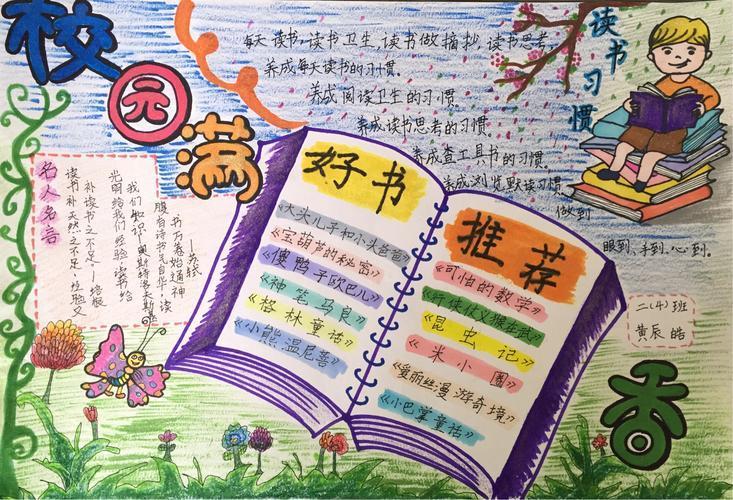 校园满
香
读书习惯
每天读书,读书卫生,读书做摘抄,读书思考,
养成每天读书的习惯。
养成阅读卫生的习惯
养成读书思考的习惯
养成查工具书的习惯
养成浏览默读习惯
做到
眼到、手到、心到。
名人名言
读书补天然之不足,经验又
补读书之不足——培根
光明给我们经验,读书给
我们知识——奥斯特洛夫斯基
腹有诗书气自华,读
书万卷始通神
——苏轼
好书
《大头儿子和小头爸爸》
《宝葫芦的秘密》
《傻鸭子欧巴儿》
《神笔马良》
《格林童话》
《小熊温尼普》
推荐
《可怕的数学》
《行侠仗义
《昆虫记》
《米小圈》
《爱丽丝漫游奇境》
《小巴掌童话》
二(4)班
黄辰皓